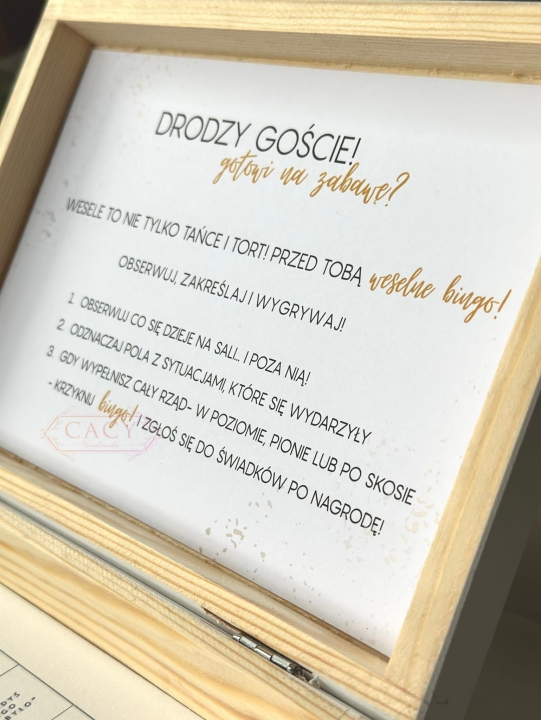 DRODZY GOŚCIE!
gotowi na zabawę?
WESELE TO NIE TYLKO TAŃCE I TORT! PRZED TOBĄ weselne bingo!
OBSERWUJ, ZAKREŚLAJ I WYGRYWAJ!
1. OBSERWUJ CO SIĘ DZIEJE NA SALI.. I POZA NIĄ!
2. ODZNACZAJ POLA Z SYTUACJAMI, KTÓRE SIĘ WYDARZYŁY
3. GDY WYPEŁNISZ CAŁY RZĄD- W POZIOMIE, PIONIE LUB PO SKOSIE
- KRZYKNIJ bingo! I ZGŁOŚ SIĘ DO ŚWIADKÓW PO NAGRODĘ!
CACY